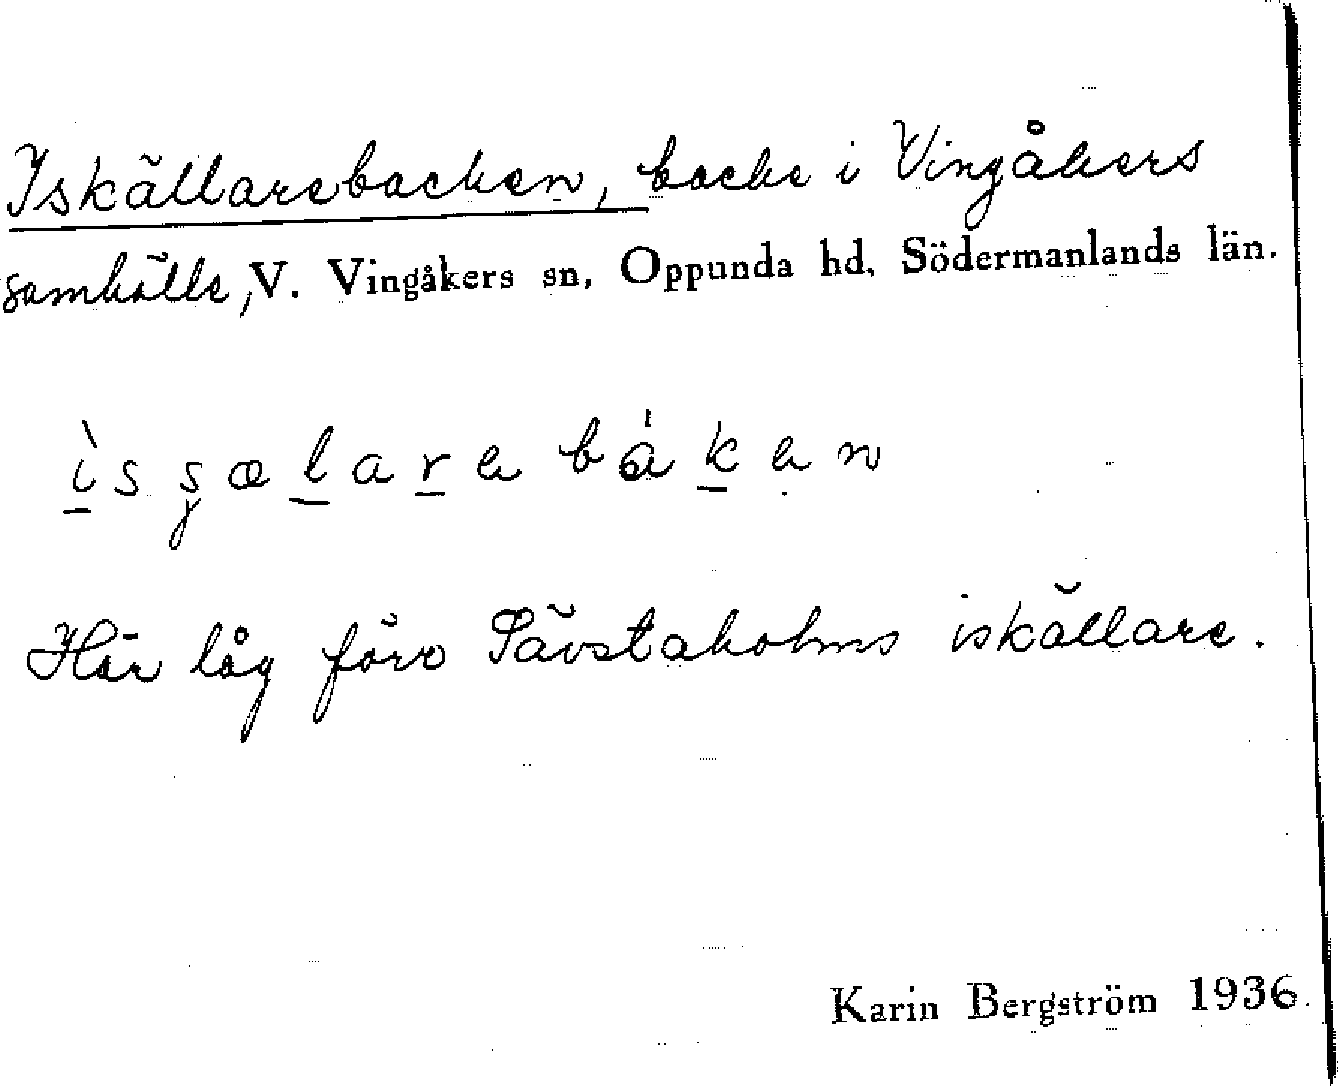 Iskällarebacken, backe i Vingåkers
samhälle, V. Vingåkers sn, Oppunda hd, Södermanlands län.
ìsʂælarebáken
Här låg förr Sävstaholms iskällare.
Karin Bergström 1936.